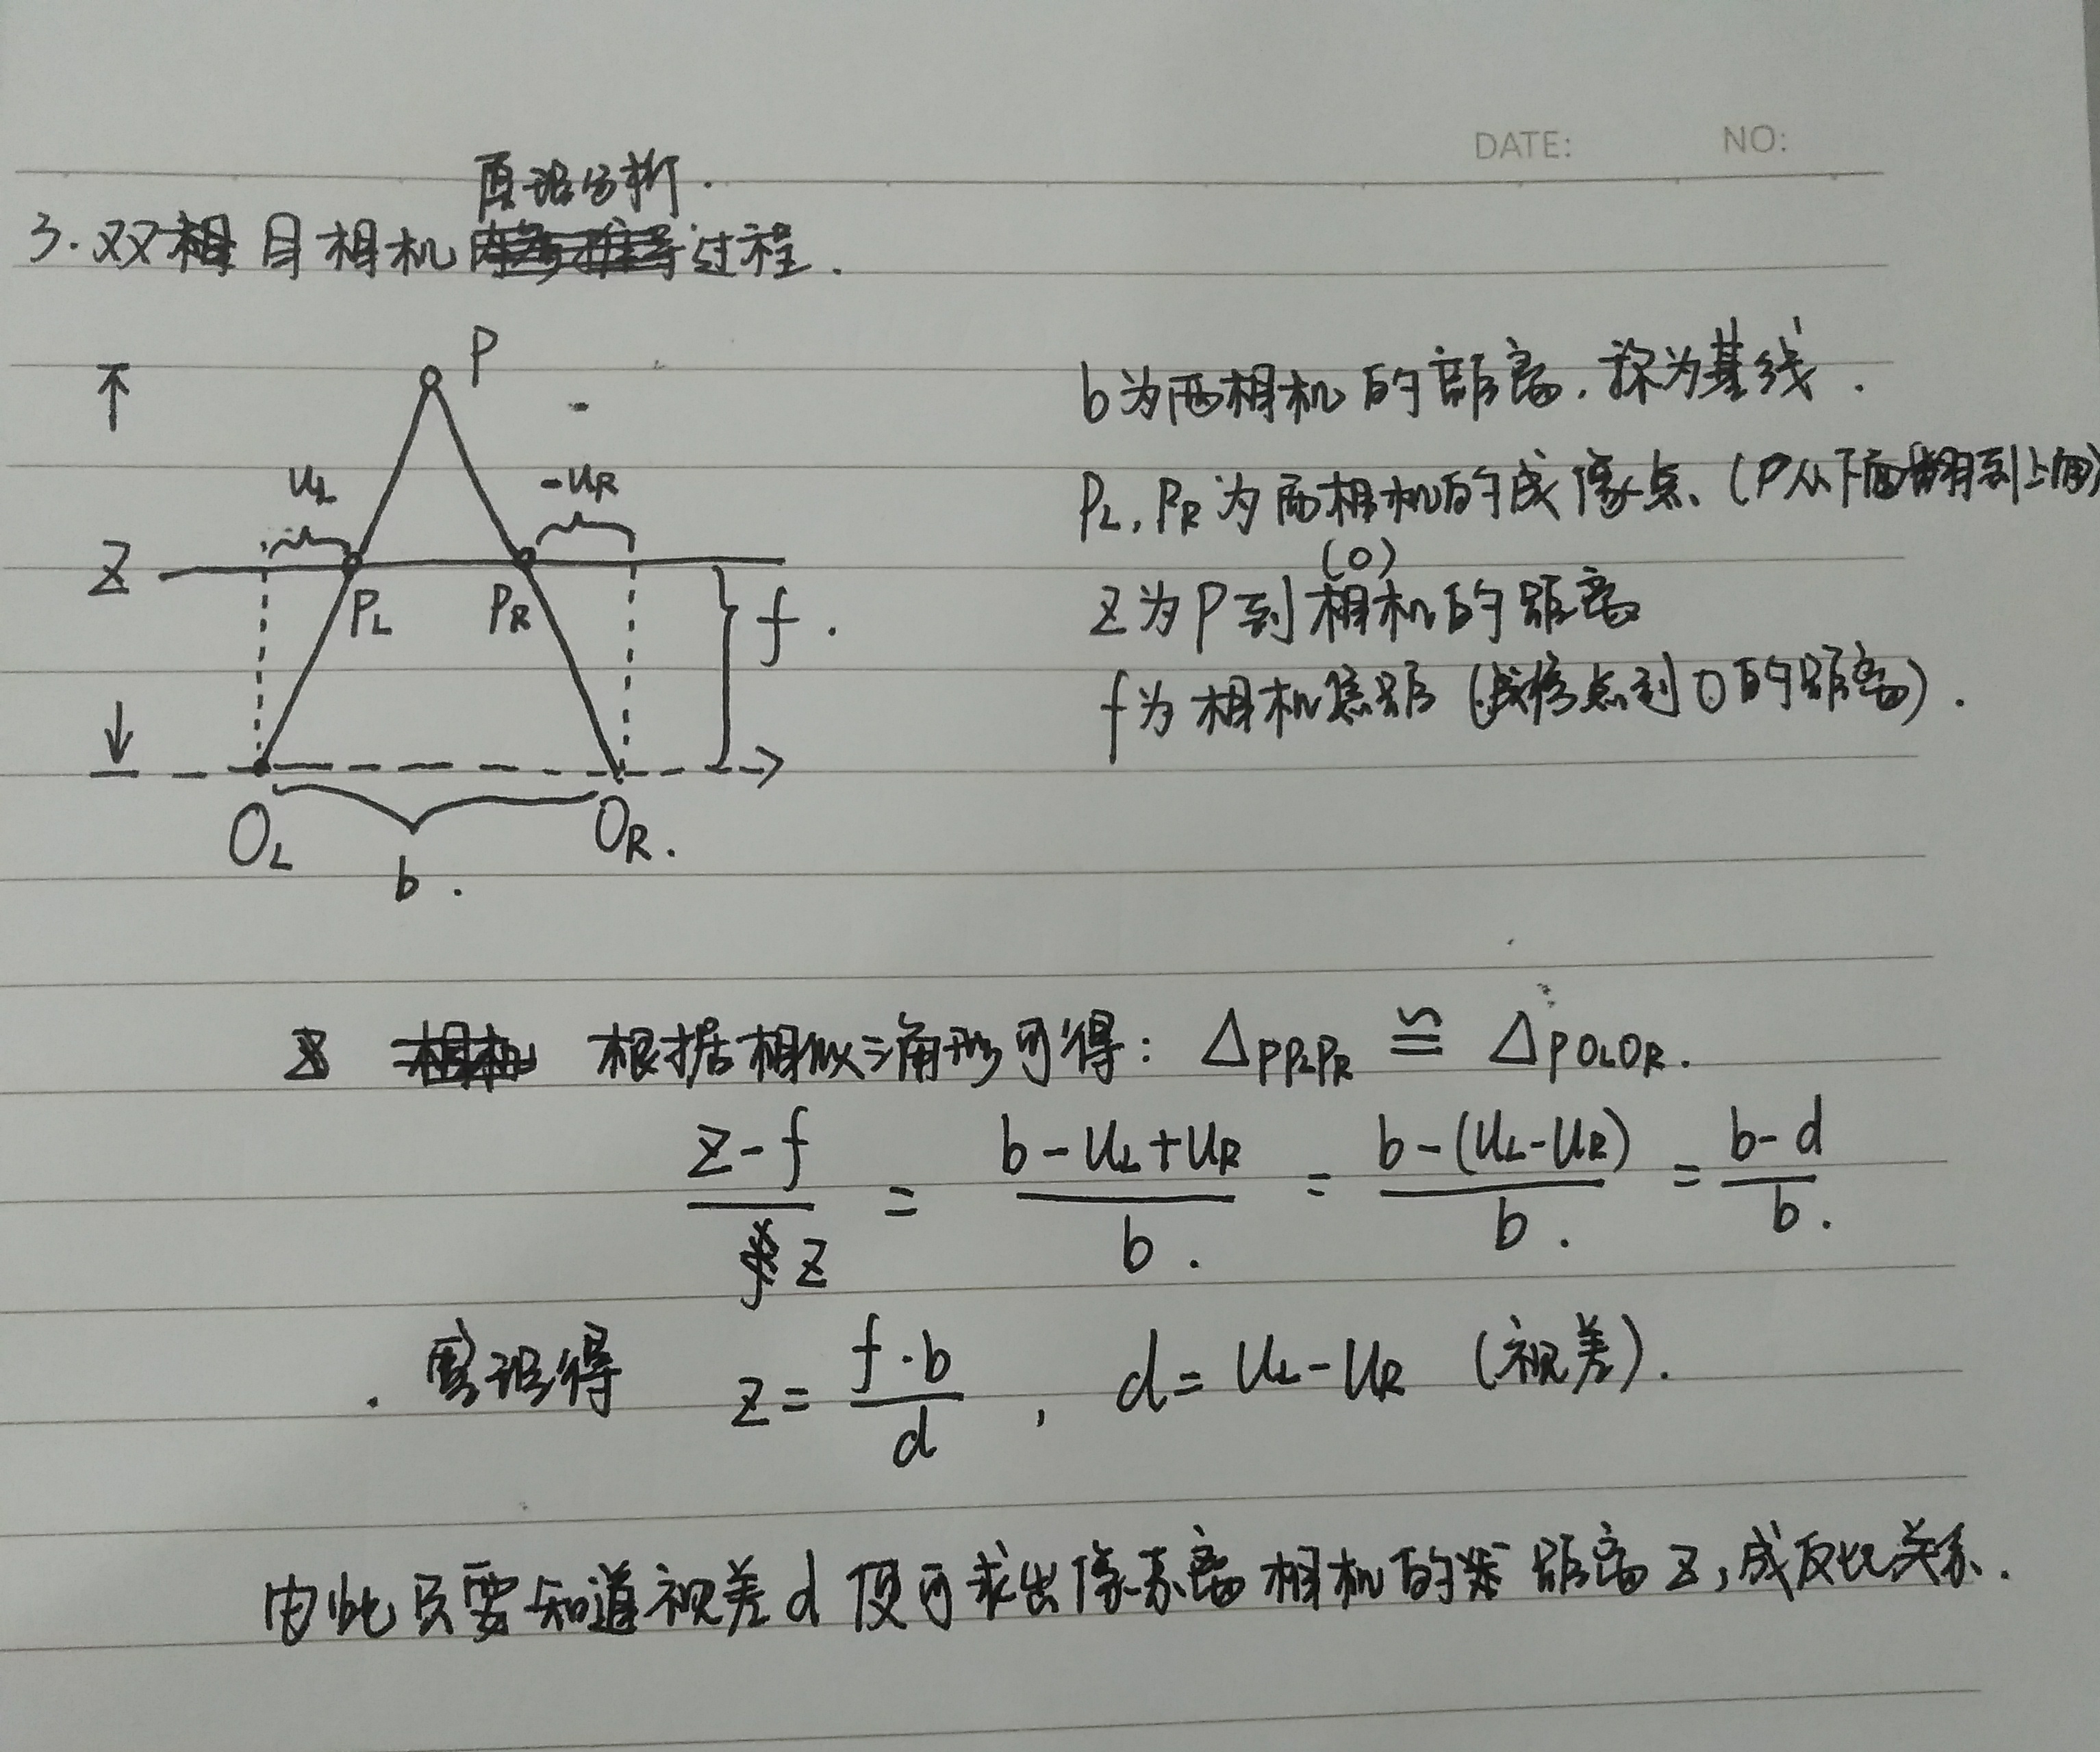 DATE: NO:
原理分析.
3.双目相机过程.
P
b为两相机的距离.称为基线.
uL -uR
PL,PR为两相机的成像点.(P从下面翻到上面)
Z
PL PR f.
(O)
z为P到相机的距离
f为相机焦距(成像点到O的距离).
OL OR.
b.
根据相似三角形可得: △PPLPR ≌ △POLOR.
z-f / z = b-uL+uR / b. = b-(uL-uR) / b. = b-d / b.
整理得 z = f·b / d , d = uL-uR (视差).
由此只要知道视差d便可求出像素离相机的距离z,成反比关系.